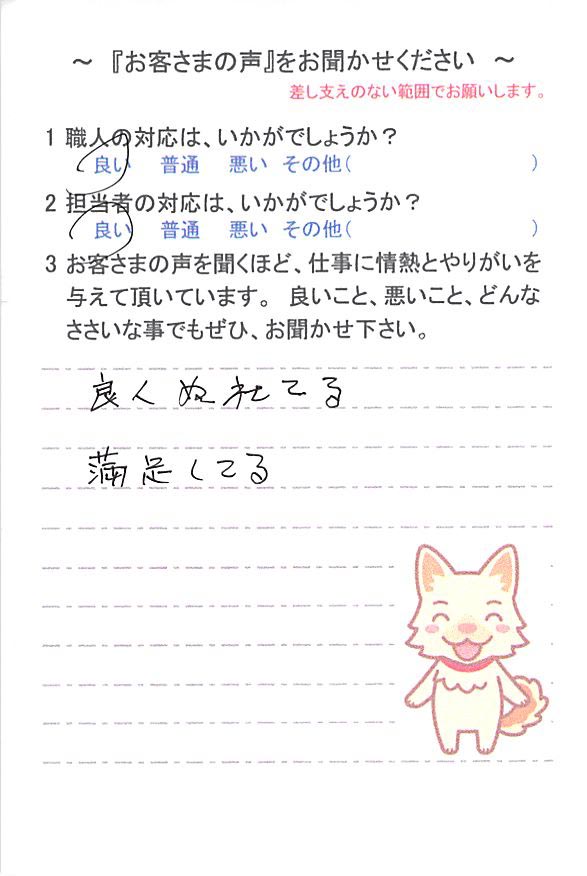 ～ 『お客さまの声』をお聞かせください ～
差し支えのない範囲でお願いします。
1 職人の対応は、いかがでしょうか?
良い 普通 悪い その他( )
2 担当者の対応は、いかがでしょうか?
良い 普通 悪い その他( )
3 お客さまの声を聞くほど、仕事に情熱とやりがいを
与えて頂いています。 良いこと、悪いこと、どんな
ささいな事でもぜひ、お聞かせ下さい。
良くぬれてる
満足してる